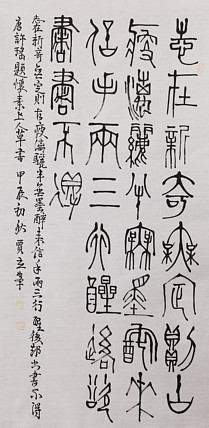 志在新奇無定則古
瘦漓驪半無墨醉來
信手兩三行醒後卻
書書不得
志在新奇無定則古瘦漓驪半無墨醉來信手兩三行醒後却書書不得
唐許瑶題懷素上人草書 甲辰初秋 賈立